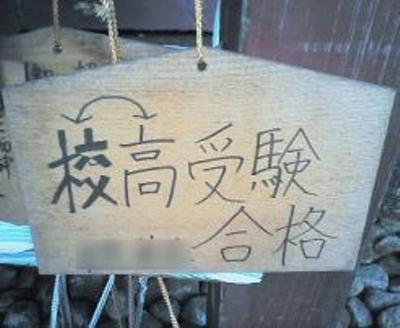 校高受験
合格